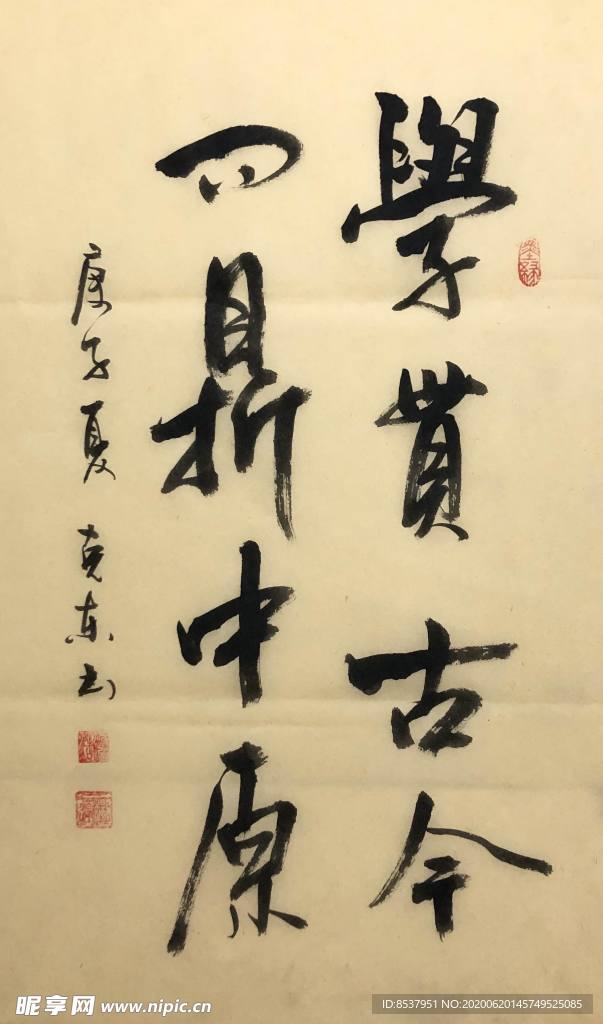 學貫古今
问鼎中原
庚子夏 克东书
昵享网 www.nipic.cn
ID:8537951 NO:20200620145749525085